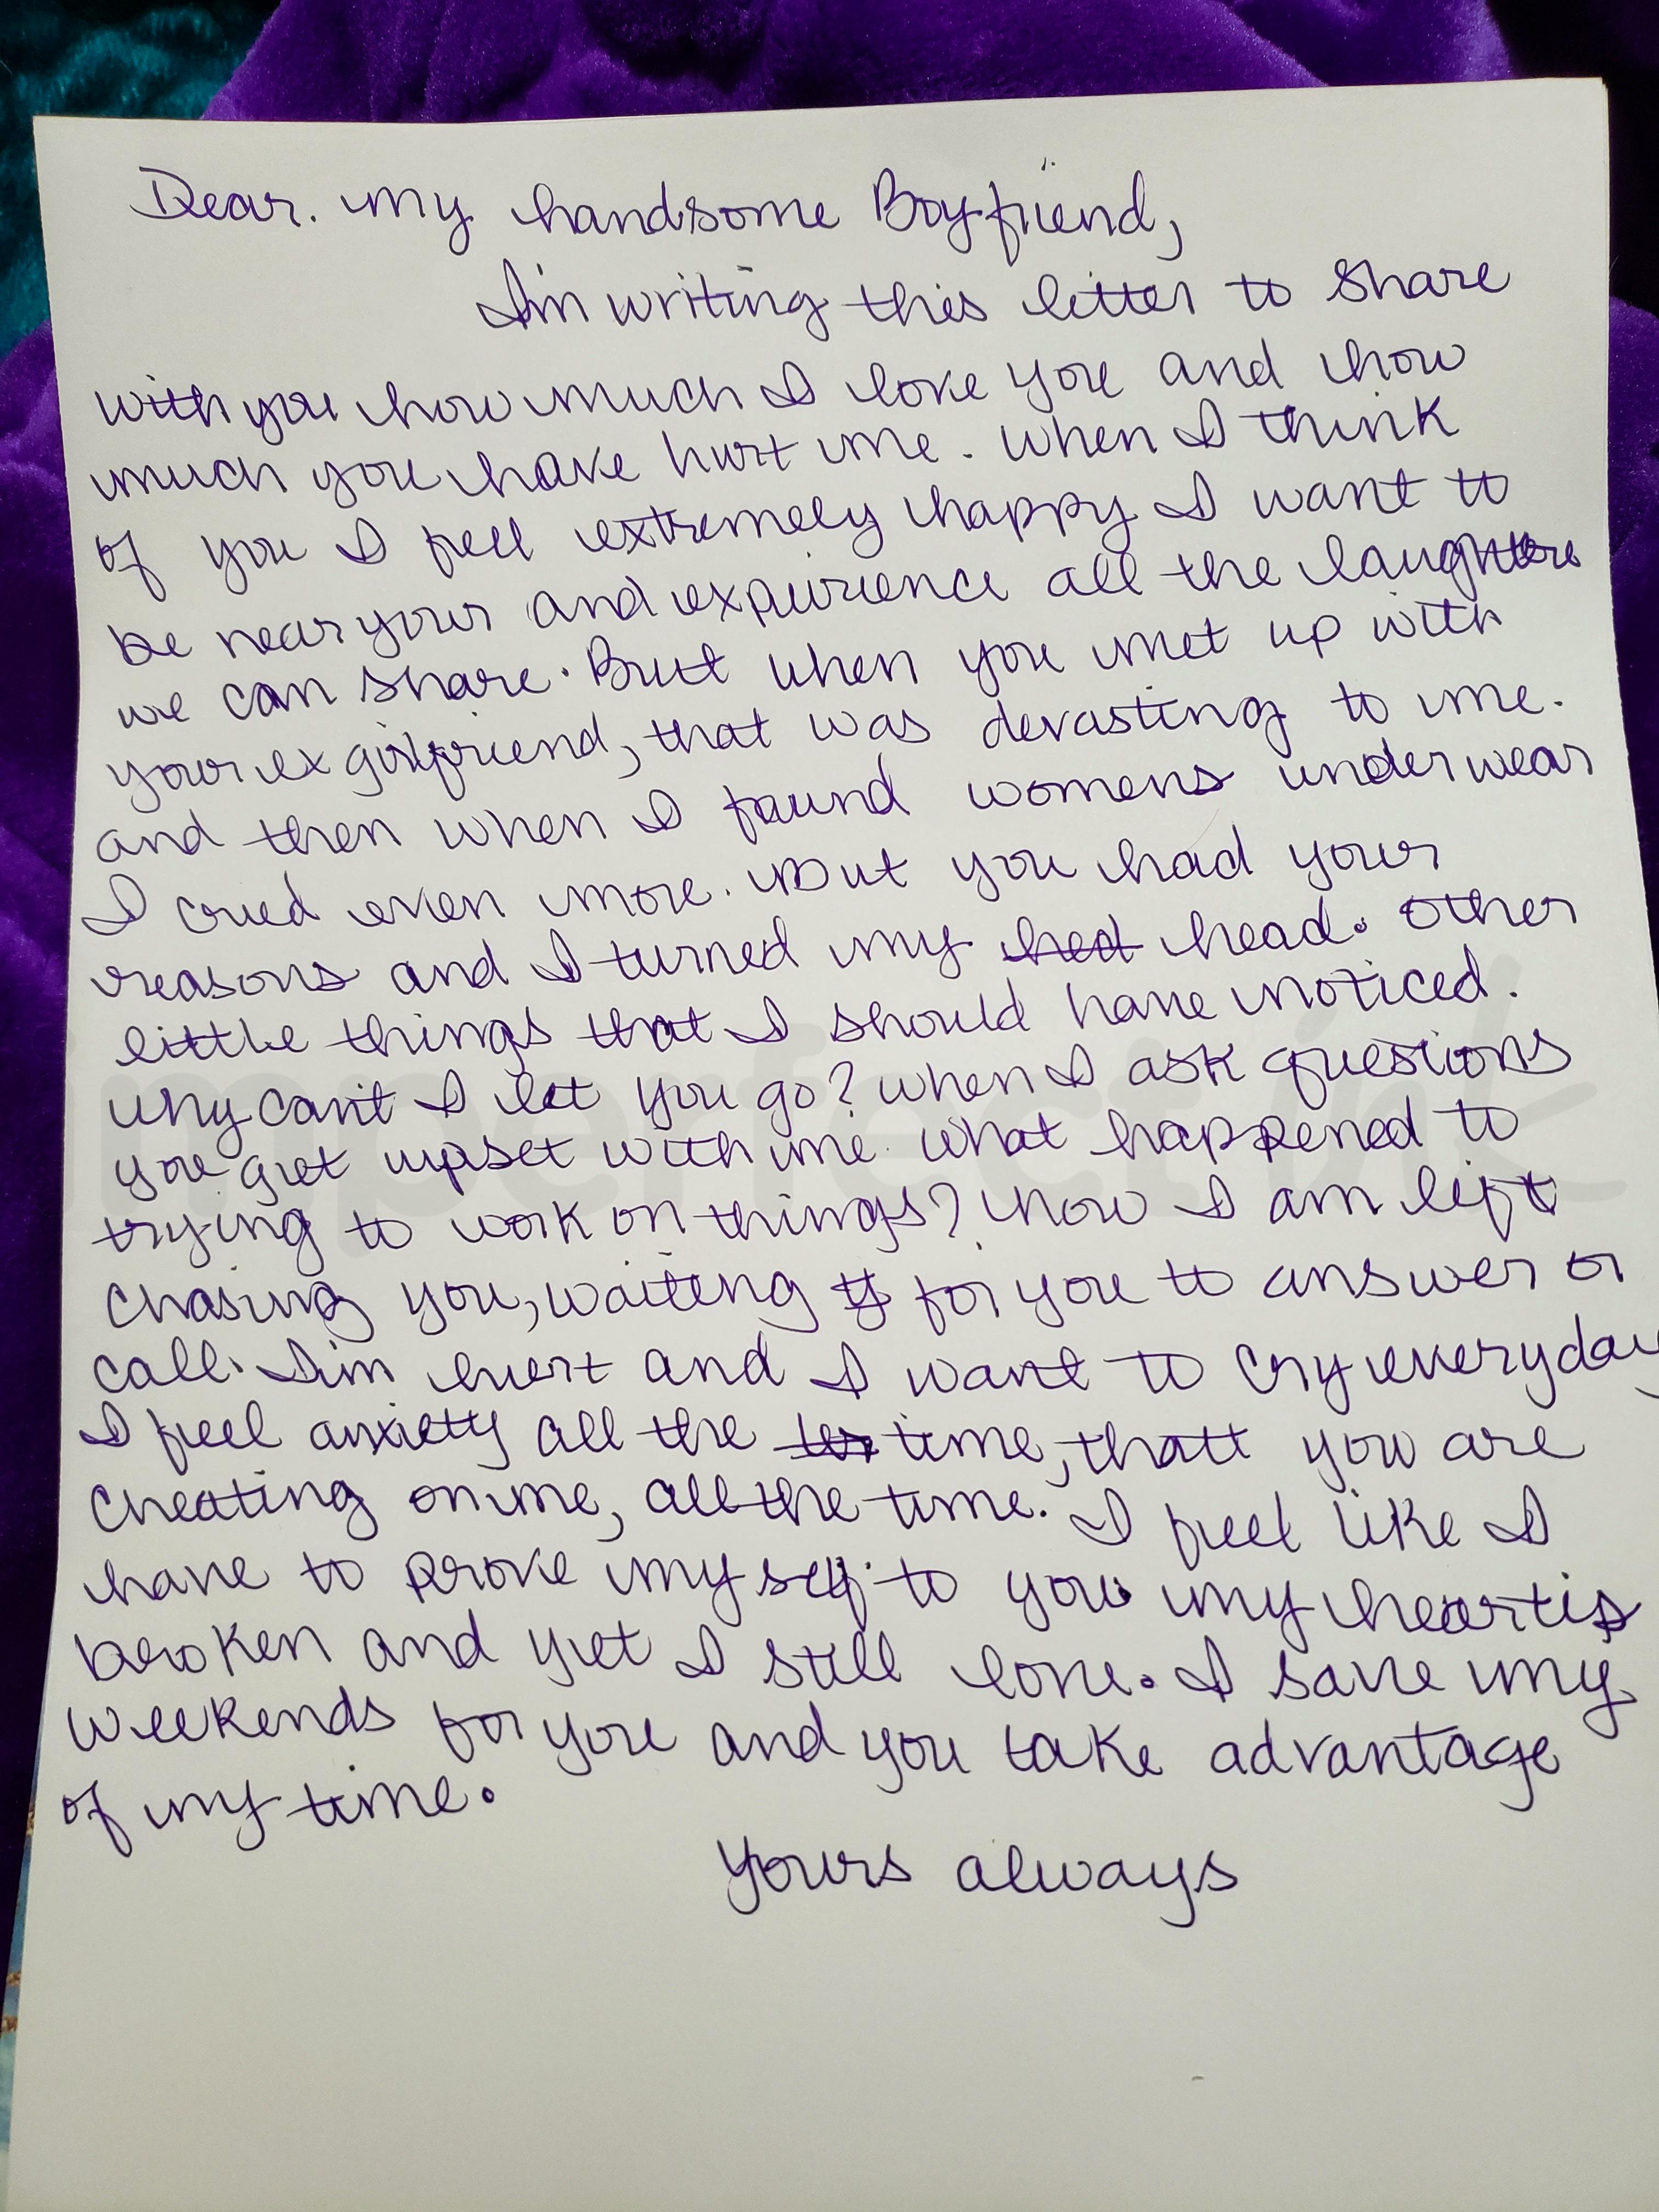 Dear. my handsome Boyfriend,
I'm writing this letter to share
with you how much I love you and how
much you have hurt me. when I think
of you I feel extremely happy I want to
be near your and expeirience all the laughters
we can share. But when you met up with
your ex girlfriend, that was devasting to me.
and then when I found womens underwear
I cried even more. But you had your
reasons and I turned my hed head. other
little things that I should have noticed.
why can't I let you go? when I ask questions
you get upset with me. what happened to
trying to work on things? Now I am left
chasing you, waiting for you to answer or
call. I'm hurt and I want to cry everyday
I feel anxiety all the time, thatt you are
cheating on me, all the time. I feel like I
have to prove my self to you. my heart is
broken and yet I still love. I save my
weekends for you and you take advantage
of my time.
Yours always
imperfect ink